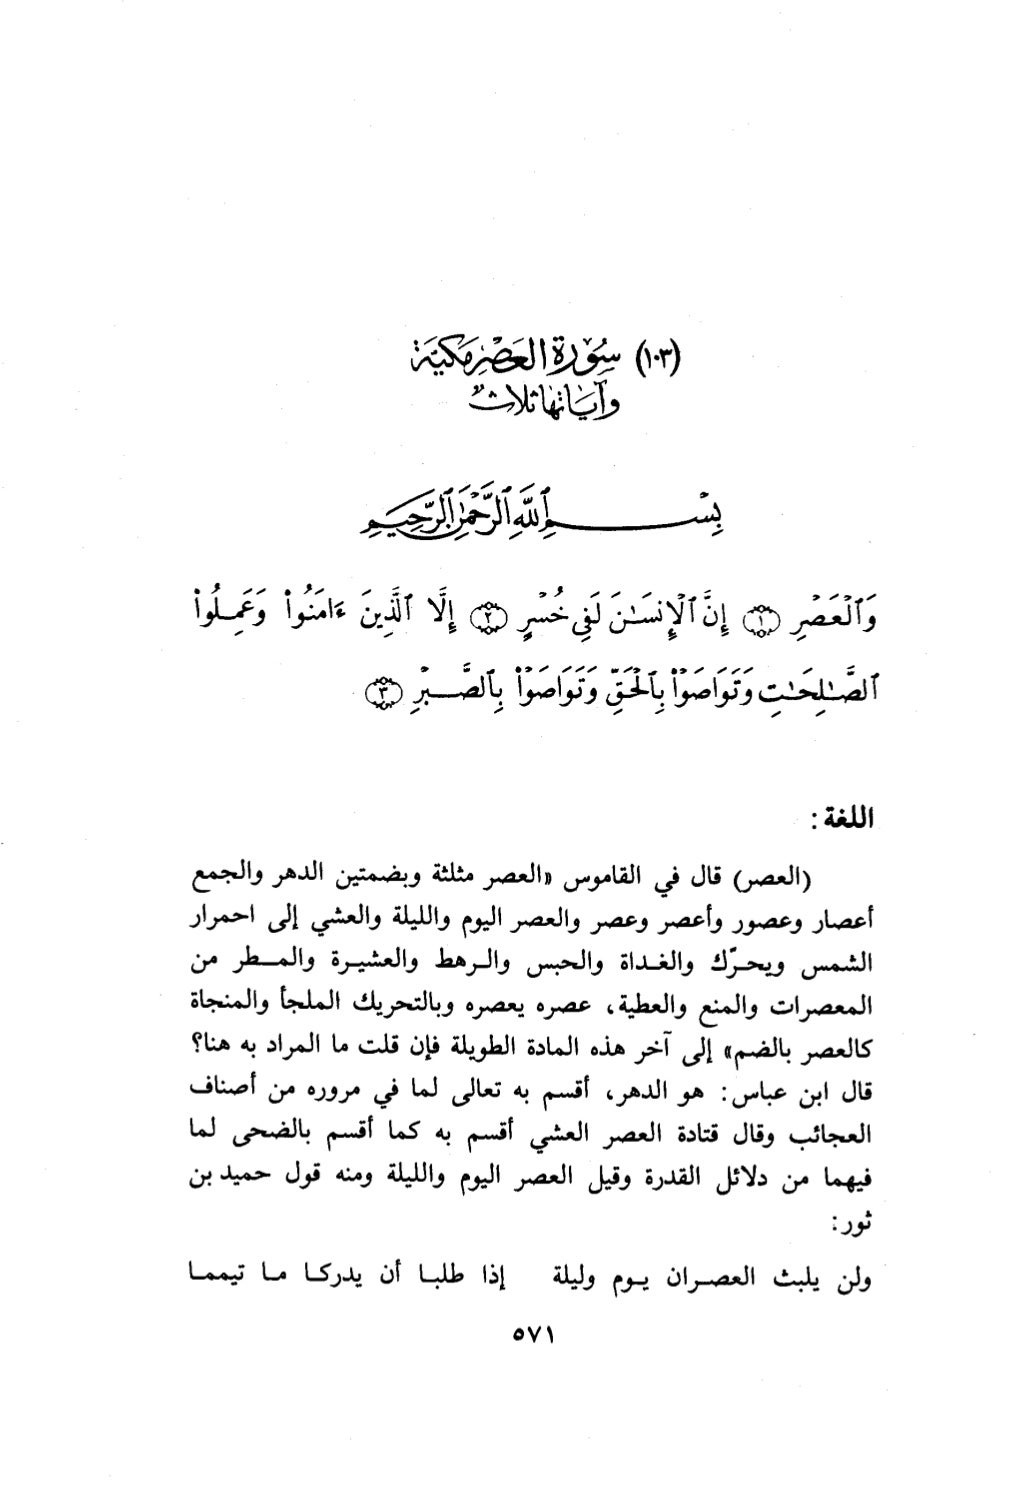 (١٠٣) سُورَة العَصْرِ مَكيَّة
وآيَاتهَا ثلاثٌ
بِسْمِ ٱللَّهِ ٱلرَّحْمَٰنِ ٱلرَّحِيمِ
وَٱلْعَصْرِ ١ إِنَّ ٱلْإِنسَـٰنَ لَفِى خُسْرٍ ٢ إِلَّا ٱلَّذِينَ ءَامَنُوا۟ وَعَمِلُوا۟
ٱلصَّـٰلِحَـٰتِ وَتَوَاصَوْا۟ بِٱلْحَقِّ وَتَوَاصَوْا۟ بِٱلصَّبْرِ ٣
اللغة :
(العصر) قال في القاموس «العصر مثلثة وبضمتين الدهر والجمع
أعصار وعصور وأعصر وعصر والعصر اليوم والليلة والعشي إلى احمرار
الشمس ويحرّك والغداة والحبس والرهط والعشيرة والمطر من
المعصرات والمنع والعطية، عصره يعصره وبالتحريك الملجأ والمنجاة
كالعصر بالضم» إلى آخر هذه المادة الطويلة فإن قلت ما المراد به هنا؟
قال ابن عباس: هو الدهر، أقسم به تعالى لما في مروره من أصناف
العجائب وقال قتادة العصر العشي أقسم به كما أقسم بالضحى لما
فيهما من دلائل القدرة وقيل العصر اليوم والليلة ومنه قول حميد بن
ثور:
ولن يلبث العصران يوم وليلة إذا طلبا أن يدركا ما تيمما
٥٧١